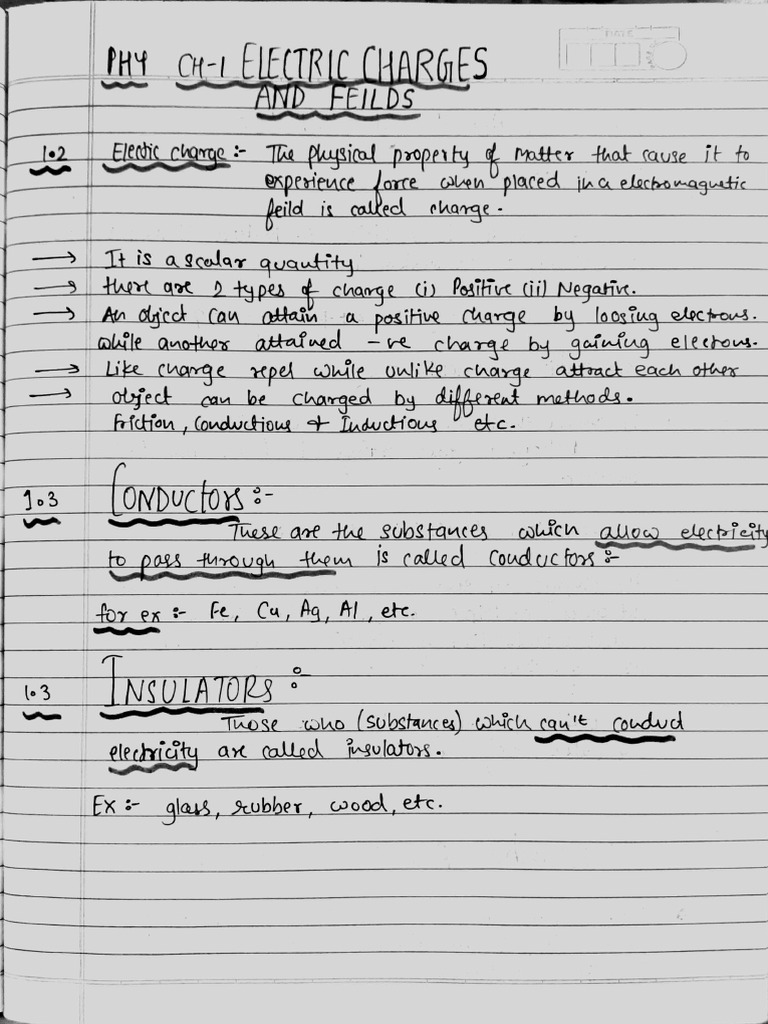 PHY CH-1 ELECTRIC CHARGES
AND FEILDS
1.2 Electic charge :- The physical property of matter that cause it to
experience force when placed in a electromagnetic
feild is called charge.
→ It is a scalar quantity
→ there are 2 types of charge (i) Positive (ii) Negative.
→ An object can attain a positive charge by loosing electrons.
while another attained -ve charge by gaining electrons.
→ Like charge repel while unlike charge attract each other
→ object can be charged by different methods.
Friction, Conductions + Inductions etc.
1.3 CONDUCTORS :-
These are the substances which allow electricity
to pass through them is called conductors :-
for ex :- Fe, Cu, Ag, Al, etc.
1.3 INSULATORS :-
Those who (substances) which can't conduct
electricity are called insulators.
Ex :- glass, rubber, wood, etc.